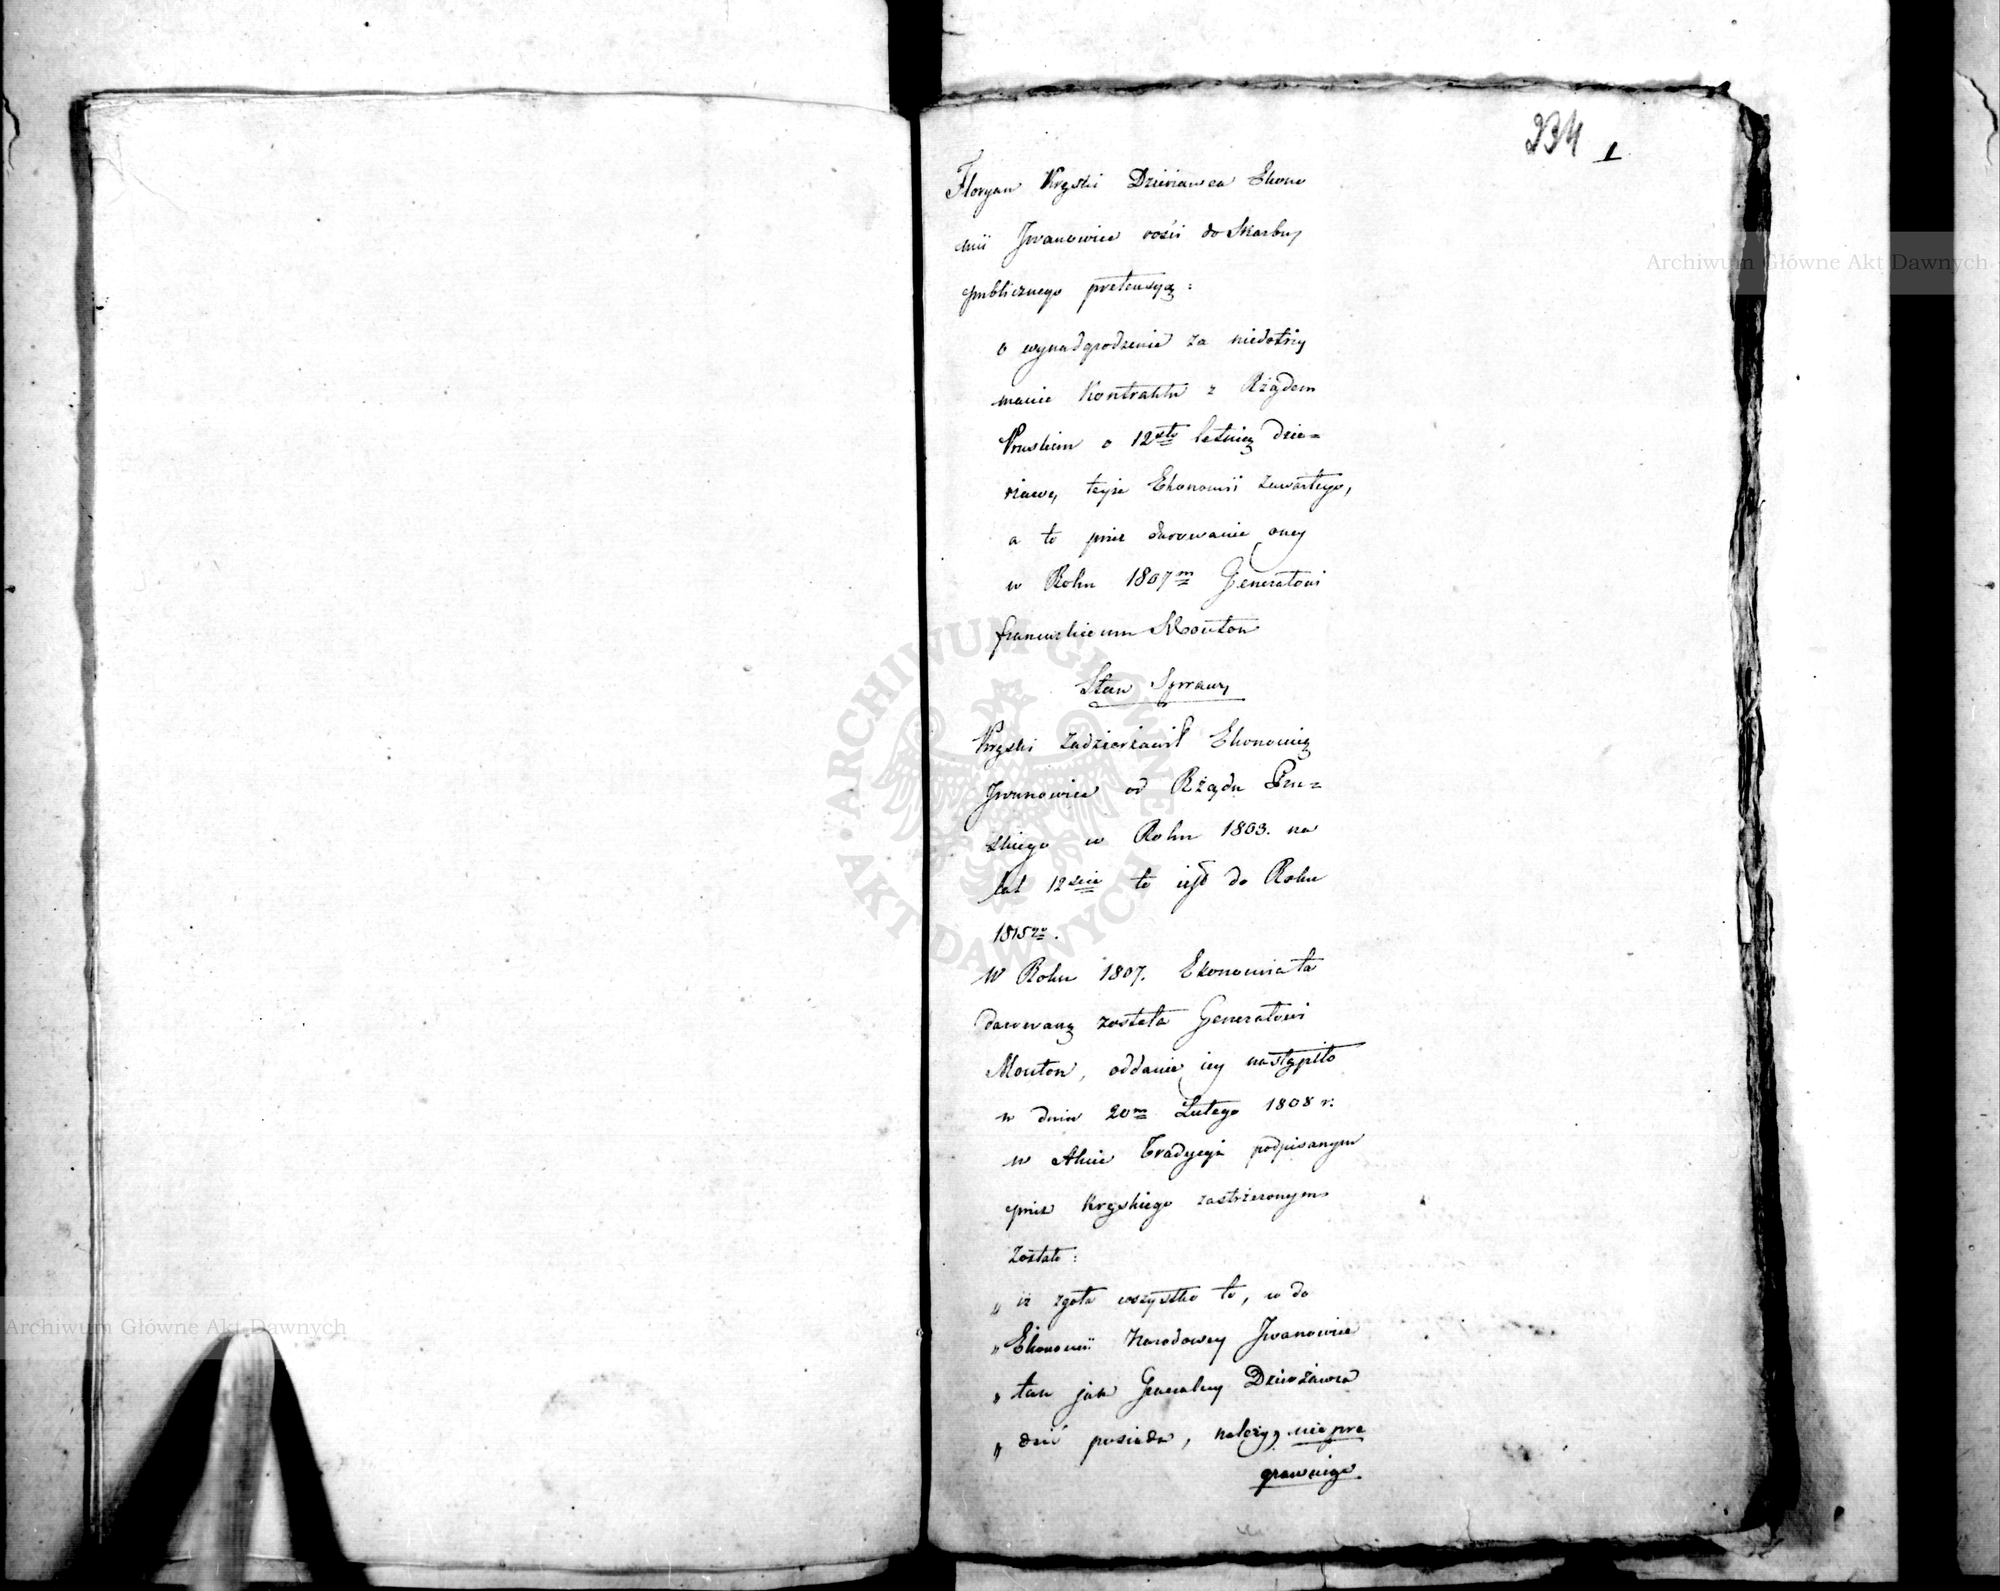 234 1
Floryan Kręski Dzierżawca Ekono
mii Jwanowice rości do Skarbu
publicznego pretensyą:
o wynadgrodzenie za niedotrzy
manie Kontraktu z Rządem
Pruskim o 12sto letnią dzie=
rżawę teyże Ekonomii zawartego,
a to przez darowanie oney
w Roku 1807m Generałowi
francuzkiemu Mouton
Stan Sprawy
Kręski zadzierżawił Ekonomią
Jwanowice od Rządu Pru=
skiego w Roku 1803. na
lat 12ście to iest do Roku
1815go.
W Roku 1807. Ekonomia ta
darowaną została Generałowi
Mouton, oddanie iey nastąpiło
w dniu 20m Lutego 1808 r.
w Akcie Tradycyi podpisanym
przez Kręskiego zastrzeżonym
zostało:
„ iż zgoła wszystko to, co do
„ Ekonomii Narodowey Jwanowice
„ tak jak Generalny Dzierżawca
„ dziś posiada, należy, nie pra
prawnego
Archiwum Główne Akt Dawnych
Archiwum Główne Akt Dawnych
ARCHIWUM GŁÓWNE AKT DAWNYCH